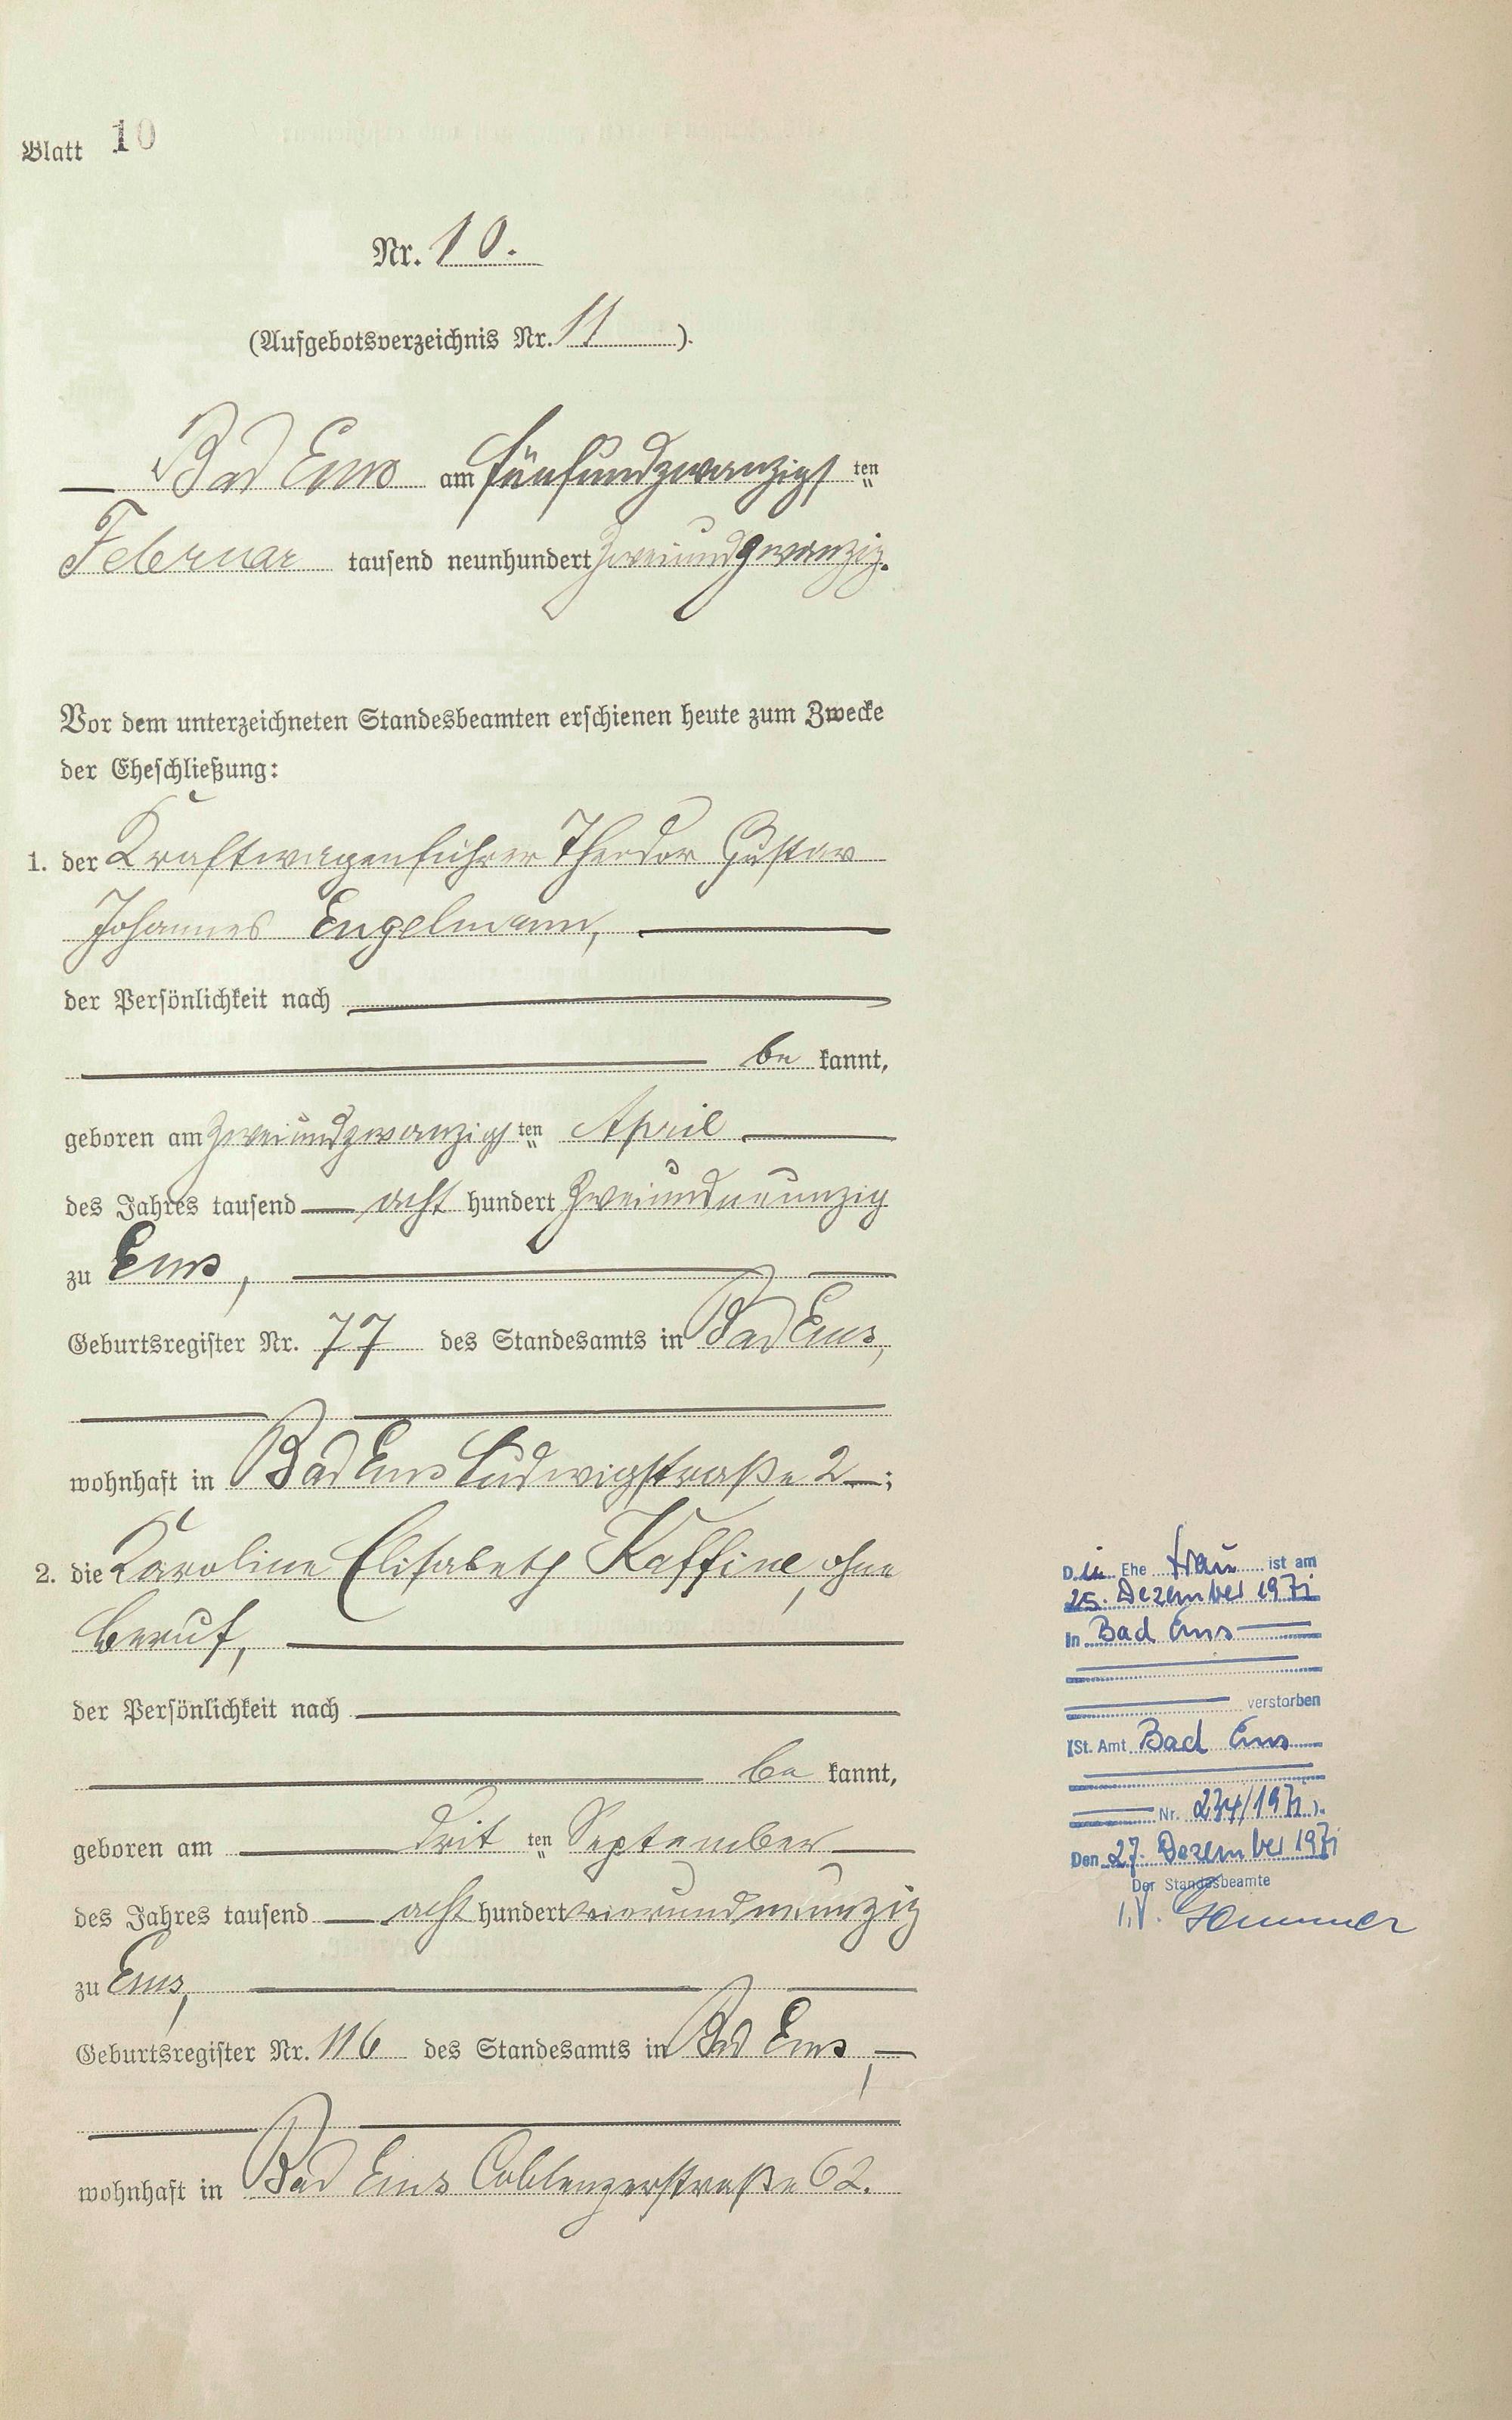 Blatt 10
Nr. 10.
(Aufgebotsverzeichnis Nr. 11).
Bad Ems am fünfundzwanzigsten
Februar tausend neunhundert zweiundzwanzig.
Vor dem unterzeichneten Standesbeamten erschienen heute zum Zwecke
der Eheschließung:
1. der Kraftwagenführer Theodor Gustav
Johannes Engelmann,
der Persönlichkeit nach
be kannt,
geboren am zweiundzwanzigsten April
des Jahres tausend acht hundert zweiundneunzig
zu Ems,
Geburtsregister Nr. 77 des Standesamts in Bad Ems,
wohnhaft in Bad Ems Ludwigstraße 2;
2. die Karoline Elisabeth Kaffine, ohne
Beruf,
der Persönlichkeit nach
be kannt,
geboren am dritten September
des Jahres tausend acht hundert vierundneunzig
zu Ems,
Geburtsregister Nr. 116 des Standesamts in Bad Ems,
wohnhaft in Bad Ems Coblenzerstraße 62.
Die Ehe frau ist am
25. Dezember 1971
in Bad Ems
verstorben
(St. Amt Bad Ems
Nr. 234/1971).
Den 27. Dezember 1971
Der Standesbeamte
I.V.